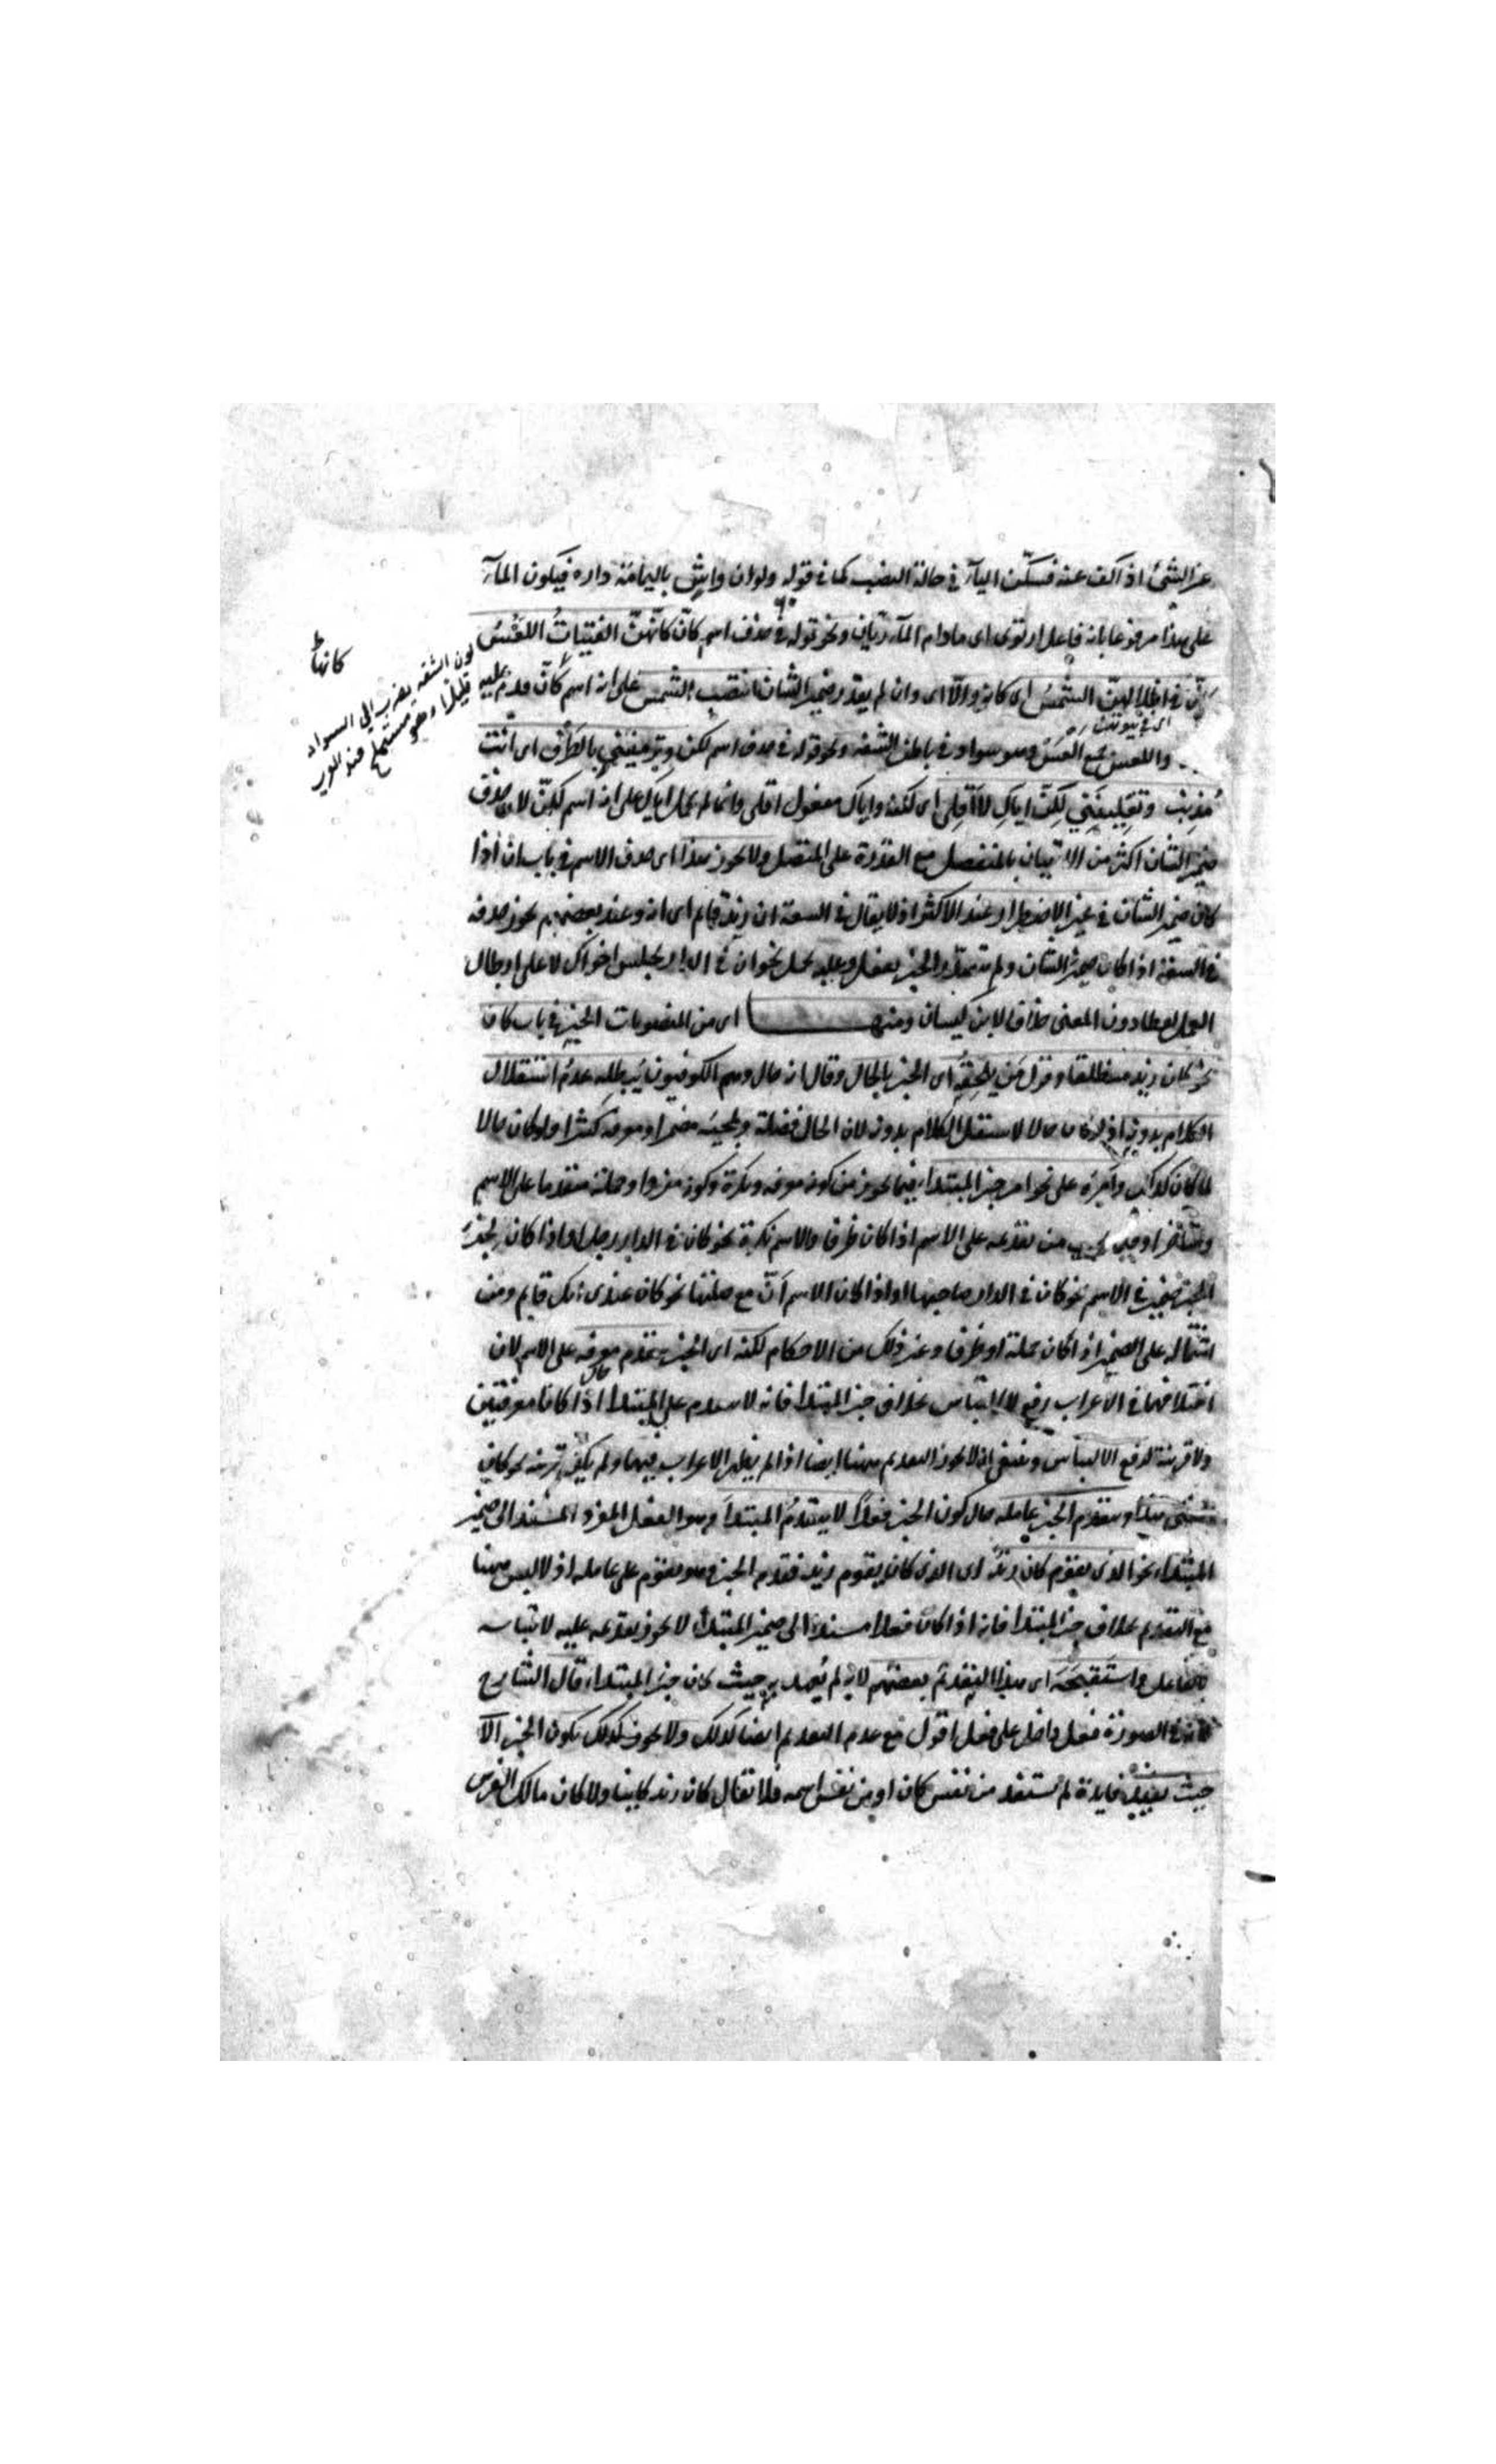 عن الشئ اذا كف عنه فسكن الياء في حالة النصب كما في قوله ولو ان واش باليمامة داره فيكون الماء
على هذا مرفوعا بانه فاعل ارتوى اى ما دام الماء ريان ونحو قوله في حذف اسم كان كأنهن الفتيات اللعس
كأن في اظلالهن الشمس اى كانه والا اى وان لم يقدر ضمير الشان انتصب الشمس على انه اسم كأن قدم عليه
اى في بيوتهن
واللعس جمع العس وهو سواد في باطن الشفة ونحو قوله في حذف اسم لكن وترمينني بالطرف اى انت
مذنب وتقلينني لكن اياك لا اقلى اى لكنه واياك مفعول اقلى وانما لم يحمل اياك على انه اسم لكن لان حذف
ضمير الشان اكثر من الاتيان بالمنفصل مع القدرة على المتصل ولا يجوز هذا اى حذف الاسم في باب ان اذا
كان ضمير الشان في غير الاضطرار عند الاكثر اذ لا يقال في السعة ان زيد قائم اى انه وعند بعضهم يجوز حذفه
في السعة اذا كان ضمير الشان ولم الخبر بفعل وعليه يحمل نحو ان في الدار يجلس اخواك لا على ابطال
العمل لفظا دون المعنى خلافا لابن كيسان ومنها اى من المنصوبات الخبر في باب كان
نحو كان زيد منطلقا وقول من يلحقه اى الخبر بالحال وقال انه حال وهم الكوفيون يبطله عدم استقلال
الكلام بدونه اذ لو كان حالا لاستقل الكلام بدونه لان الحال فضلة ومجيئه مضمرا ومعرفة كثيرا ولو كان حالا
لما كان كذلك وامره على نحو امر خبر المبتدا فيما يجوز من كونه معرفة ونكرة وكونه مفردا وجملة متقدما على الاسم
ومتأخرا وفيما يجب من تقدمه على الاسم اذا كان ظرفا والاسم نكرة نحو كان في الدار رجل او اذا كان لجزء
الخبر ضمير في الاسم نحو كان في الدار صاحبها او اذا كان الاسم ان مع صلتها نحو كان عندى انك قايم ومن
اشتماله على الضمير اذا كان جملة او ظرفا وغير ذلك من الاحكام لكنه اى الخبر يتقدم معرفة على الاسم لان
اختلافهما في الاعراب رفع الالتباس بخلاف خبر المبتدا فانه لا يتقدم على المبتدا اذا كانا معرفتين
ولا قرينة لدفع الالتباس وينبغى ان لا يجوز التقديم ههنا ايضا اذا لم يظهر الاعراب فيهما ولم يكن قرينة نحو كان
ويتقدم الخبر عامله حال كون الخبر فعلا لا يتقدم المبتدأ وهو الفعل المفرد المسند الى ضمير
المبتدا نحو الذى يقوم كان زيد اى الذى كان يقوم زيد فقدم الخبر وهو يقوم على عامله اذ لا لبس ههنا
مع التقديم بخلاف خبر المبتدا فانه اذا كان فعلا مسندا الى ضمير المبتدا لا يجوز تقدمه عليه لالتباسه
بالفاعل واستقبحه اى هذا التقديم بعضهم لانه لم يعهد به حيث كان خبر المبتدا، قال الشارح
لانه في الصورة فعل داخل على فعل اقول مع عدم التقديم ايضا كذلك ولا يجوز كذلك يكون الخبر الا
حيث يفيد فايدة لم تستفد من نفس كان او من نفس اسمه فلا يقال كان زيد كاينا ولا كان مالك الفرس
كانها
لون الشفة يضرب الى السواد
قليلا وهو
مستملح عند العرب